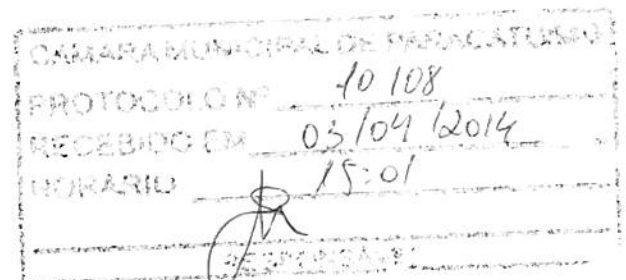 CÂMARA MUNICIPAL DE PARACATU/MG
PROTOCOLO Nº 10108
RECEBIDO EM 03/04/2014
HORÁRIO 15:01
RESPONSÁVEL